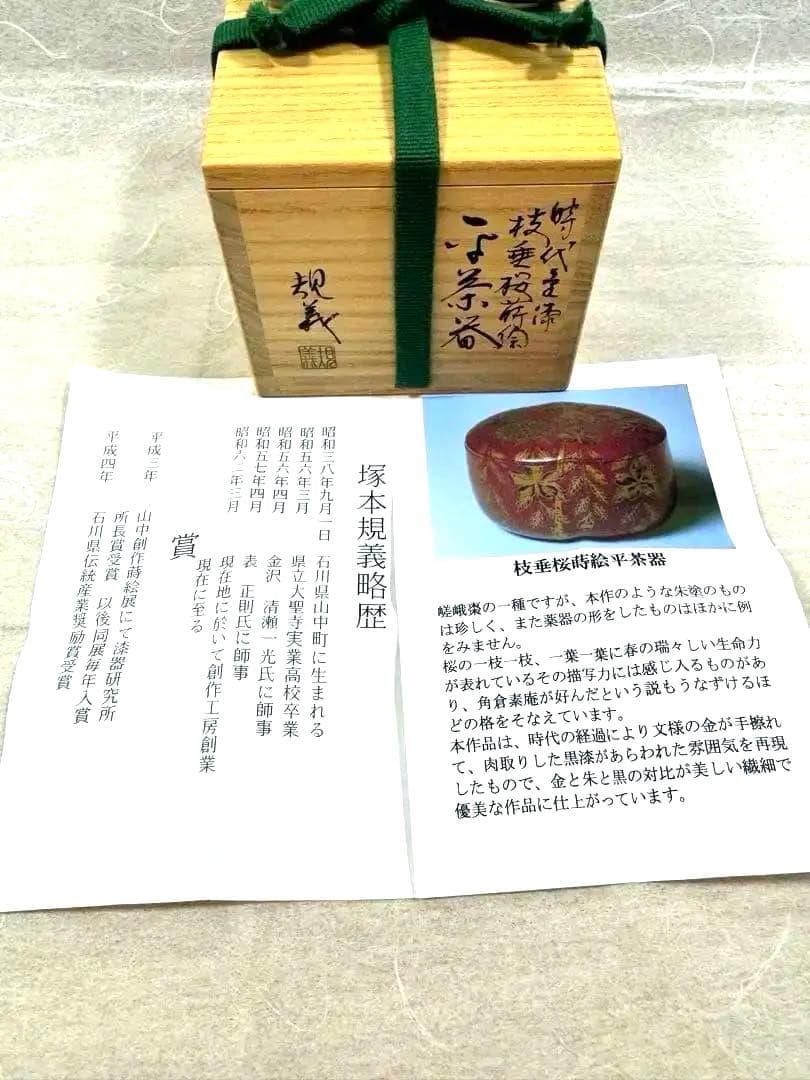 時代金漆
枝垂桜蒔絵
平茶器
規義
枝垂桜蒔絵平茶器
嵯峨棗の一種ですが、本作のような朱塗のもの
は珍しく、また薬器の形をしたものはほかに例
をみません。
桜の一枝一枝、一葉一葉に春の瑞々しい生命力
が表れているその描写力には感じ入るものがあ
り、角倉素庵が好んだという説もうなずけるほ
どの格をそなえています。
本作品は、時代の経過により文様の金が手擦れ
て、肉取りした黒漆があらわれた雰囲気を再現
したもので、金と朱と黒の対比が美しい繊細で
優美な作品に仕上がっています。
塚本規義略歴
昭和三八年九月一日 石川県山中町に生まれる
昭和五六年三月 県立大聖寺実業高校卒業
昭和五六年四月 金沢 清瀬一光氏に師事
昭和五七年四月 表 正則氏に師事
昭和六二年三月 現在地に於いて創作工房創業
現在に至る
賞
平成三年 山中創作蒔絵展にて漆器研究所
所長賞受賞 以後同展毎年入賞
平成四年 石川県伝統産業奨励賞受賞